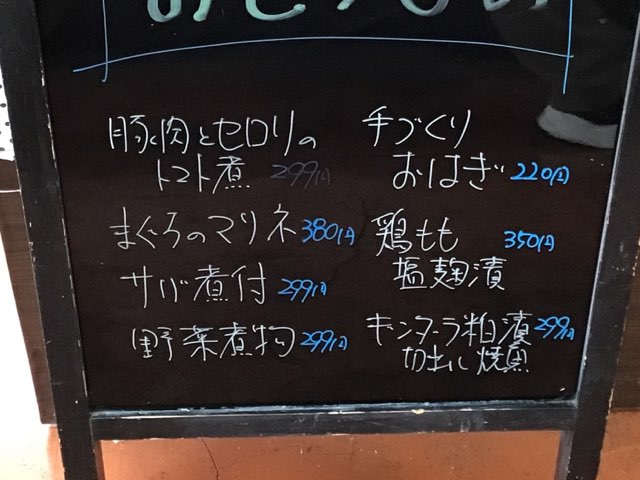 豚肉とセロリの
トマト煮 299円
まぐろのマリネ 380円
サバ煮付 299円
野菜煮物 299円
手づくり
おはぎ 220円
鶏もも 350円
塩麹漬
ギンダラ粕漬 299円
切出し焼魚